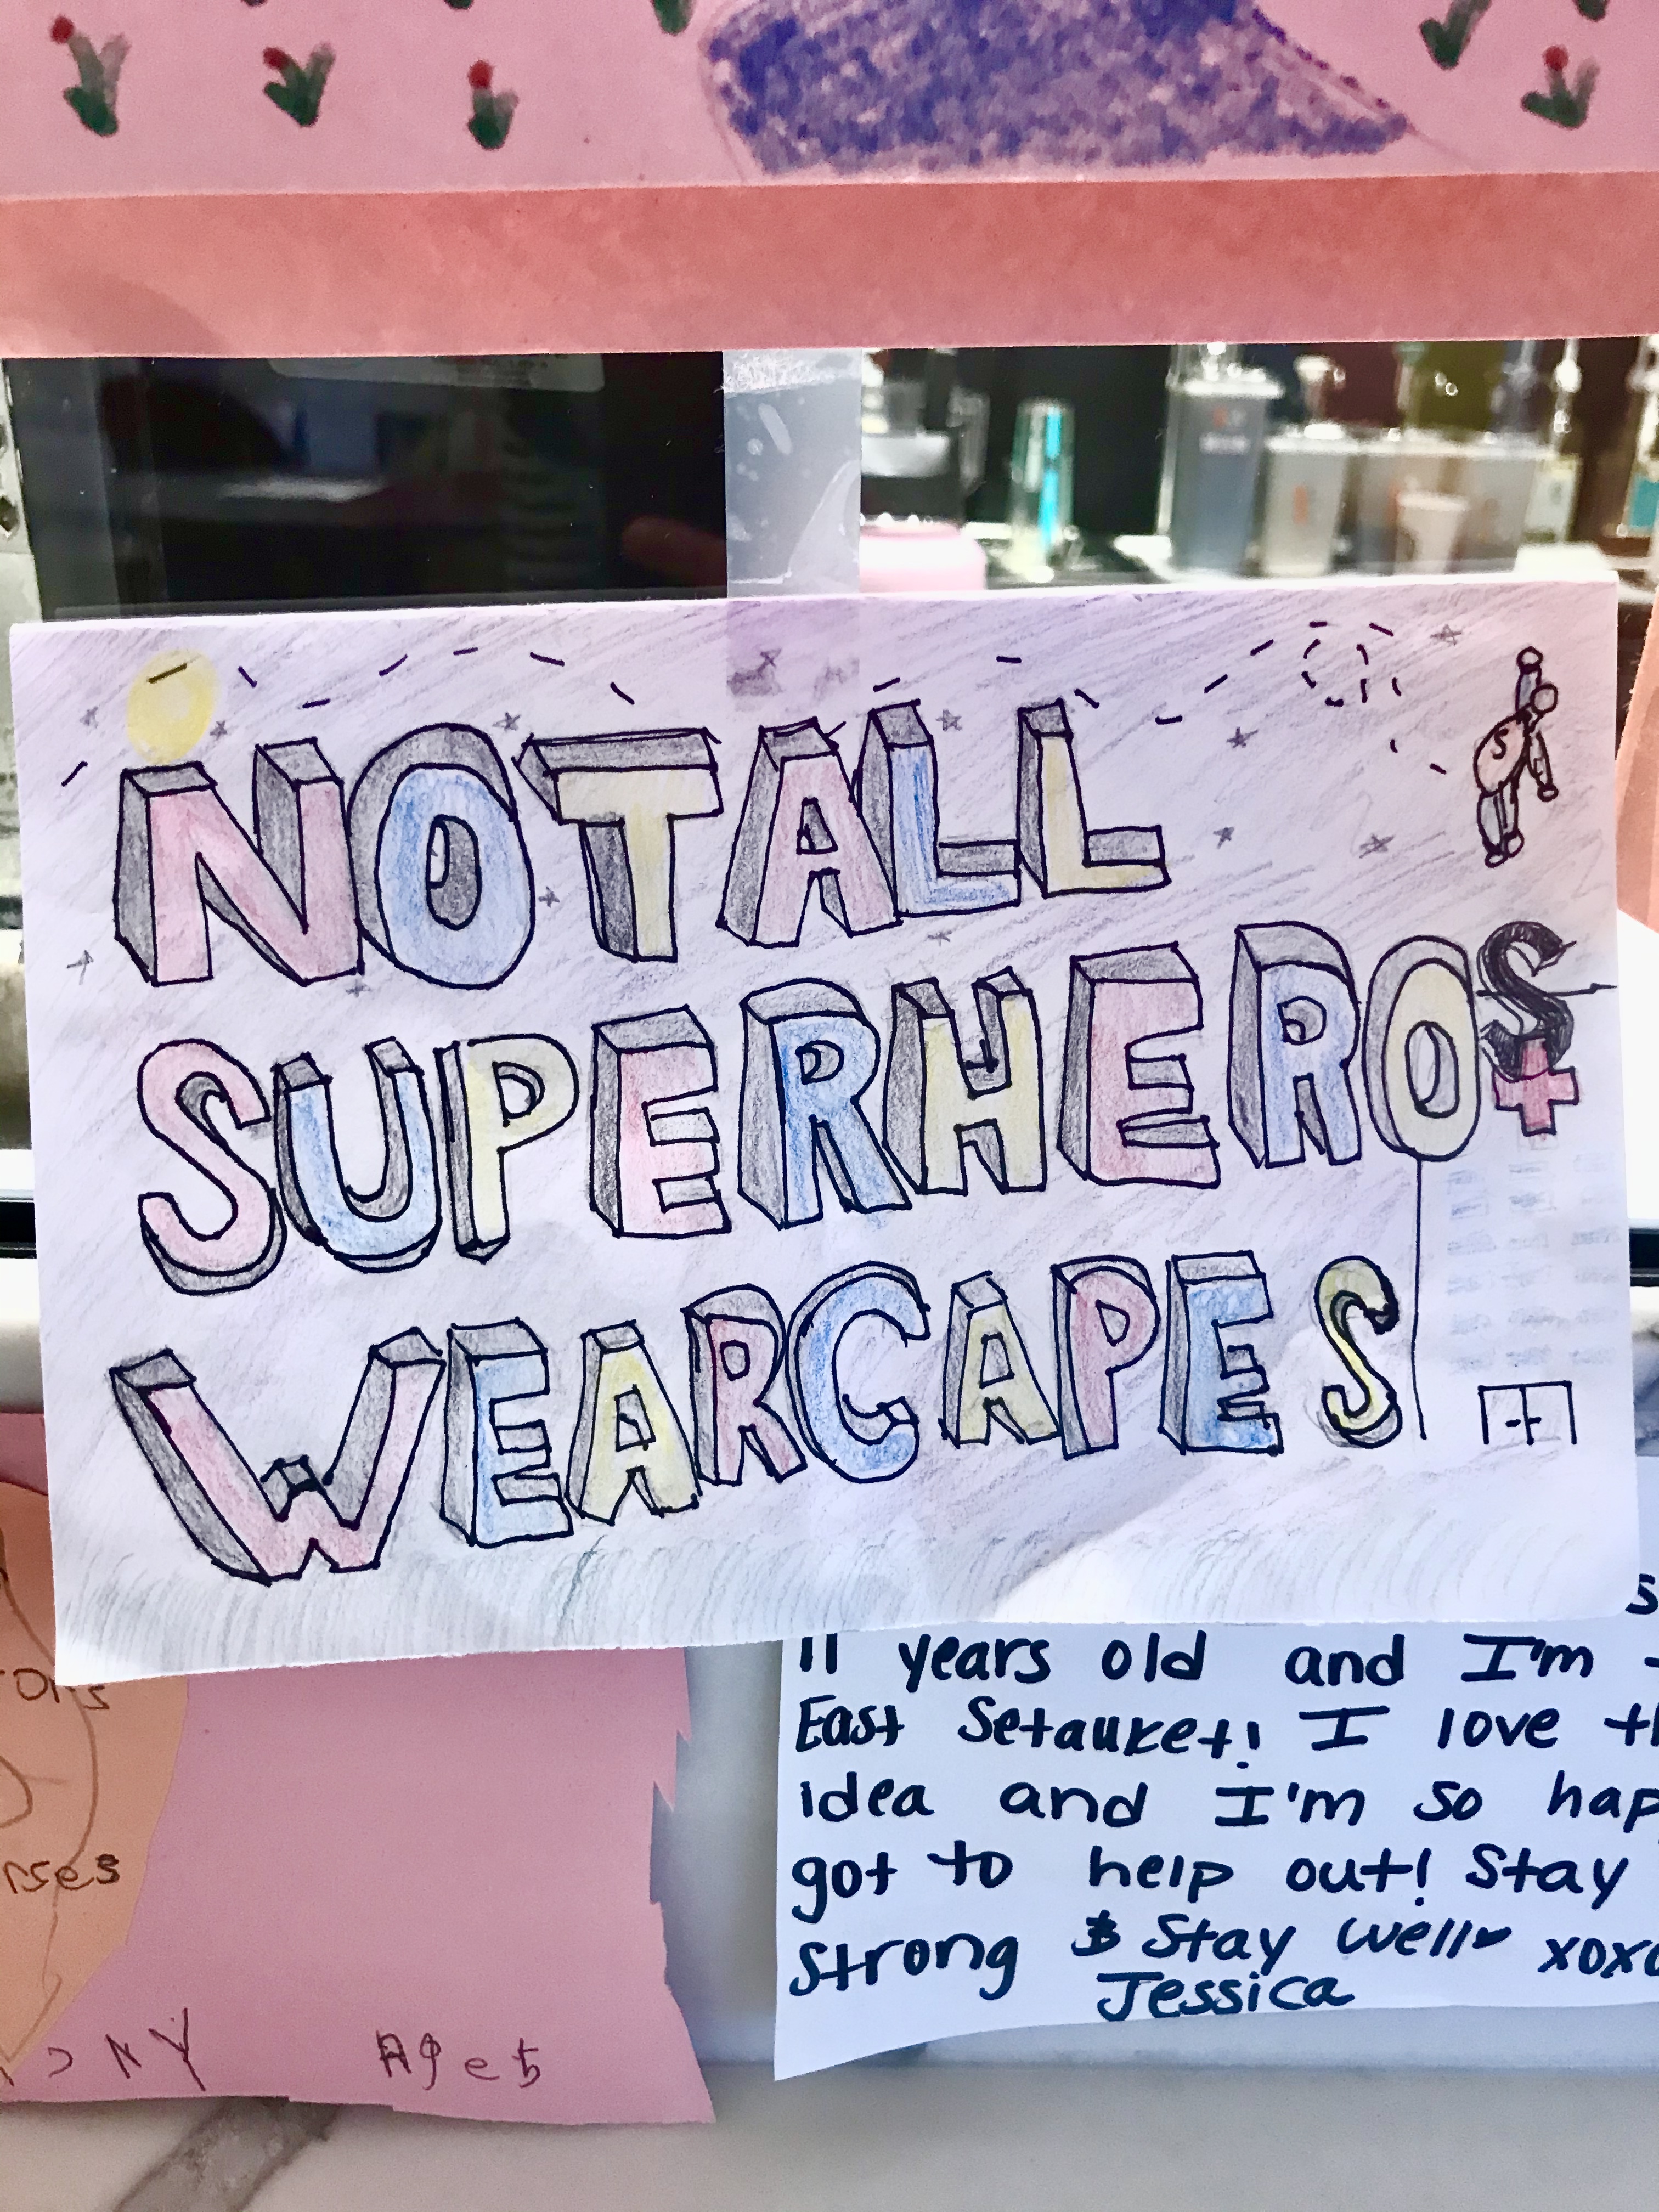 S
NOT ALL
SUPERHEROS
WEAR CAPES
11 years old and I'm
East Setauket! I love
idea and I'm so
got to help out! Stay
strong & Stay well xoxo
Jessica
NY Age 5